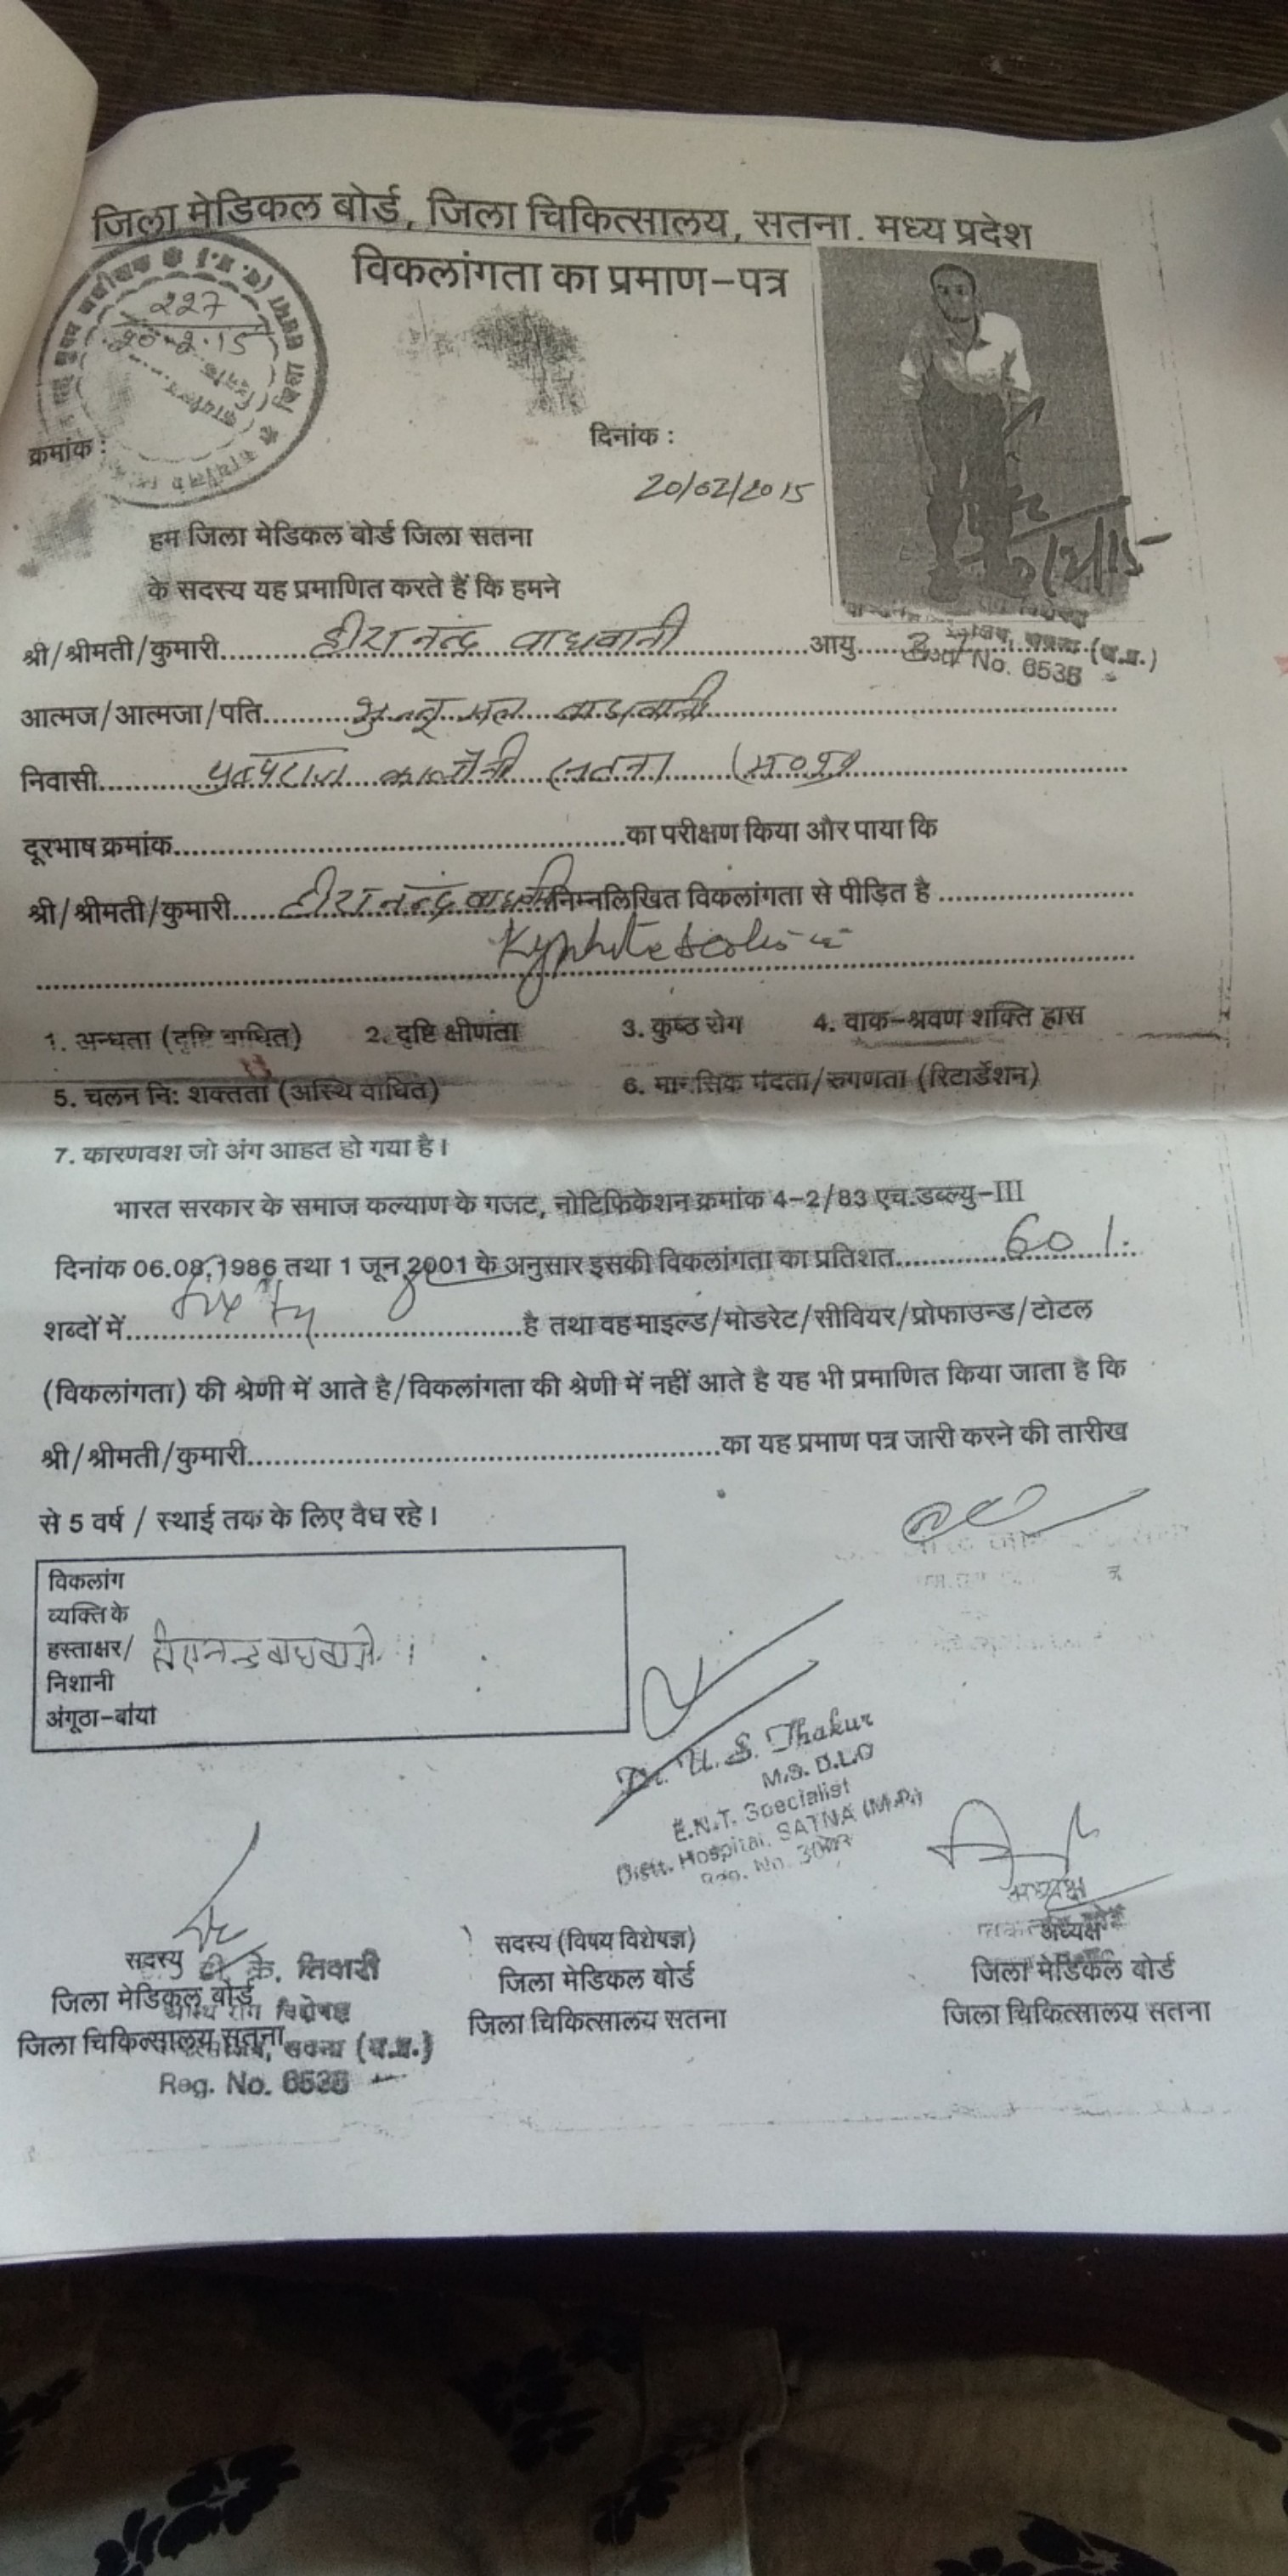 जिला मेडिकल बोर्ड, जिला चिकित्सालय, सतना. मध्य प्रदेश
विकलांगता का प्रमाण-पत्र
227
20-2-15
क्रमांक :
दिनांक :
20/02/2015
हम जिला मेडिकल बोर्ड जिला सतना
के सदस्य यह प्रमाणित करते हैं कि हमने
श्री/श्रीमती/कुमारी हीरानन्द वाधवानी आयु
(म.प्र.)
No. 6535
आत्मज/आत्मजा/पति
निवासी
दूरभाष क्रमांक का परीक्षण किया और पाया कि
श्री/श्रीमती/कुमारी हीरानन्द निम्नलिखित विकलांगता से पीड़ित है
1. अन्धता (दृष्टि बाधित) 2. दृष्टि क्षीणता 3. कुष्ठ रोग 4. वाक-श्रवण शक्ति ह्रास
5. चलन नि: शक्तता (अस्थि बाधित) 6. मानसिक मंदता/रुगणता (रिटार्डेशन)
7. कारणवश जो अंग आहत हो गया है।
भारत सरकार के समाज कल्याण के गजट, नोटिफिकेशन क्रमांक 4-2/83 एच.डब्ल्यु-III
दिनांक 06.08.1986 तथा 1 जून 2001 के अनुसार इसकी विकलांगता का प्रतिशत 60%
शब्दों में है तथा वह माइल्ड/मोडरेट/सीवियर/प्रोफाउन्ड/टोटल
(विकलांगता) की श्रेणी में आते है/विकलांगता की श्रेणी में नहीं आते है यह भी प्रमाणित किया जाता है कि
श्री/श्रीमती/कुमारी का यह प्रमाण पत्र जारी करने की तारीख
से 5 वर्ष / स्थाई तक के लिए वैध रहे।
विकलांग
व्यक्ति के
हस्ताक्षर/
निशानी
अंगूठा-बांया
Dr. U. S. Thakur
M.S. D.L.O
E.N.T. Specialist
Distt. Hospital, SATNA (M.P.)
अध्यक्ष
सदस्य के. तिवारी
जिला मेडिकल बोर्ड
जिला चिकित्सालय सतना (म.प्र.)
Reg. No. 6535
सदस्य (विषय विशेषज्ञ)
जिला मेडिकल बोर्ड
जिला चिकित्सालय सतना
अध्यक्ष
जिला मेडिकल बोर्ड
जिला चिकित्सालय सतना